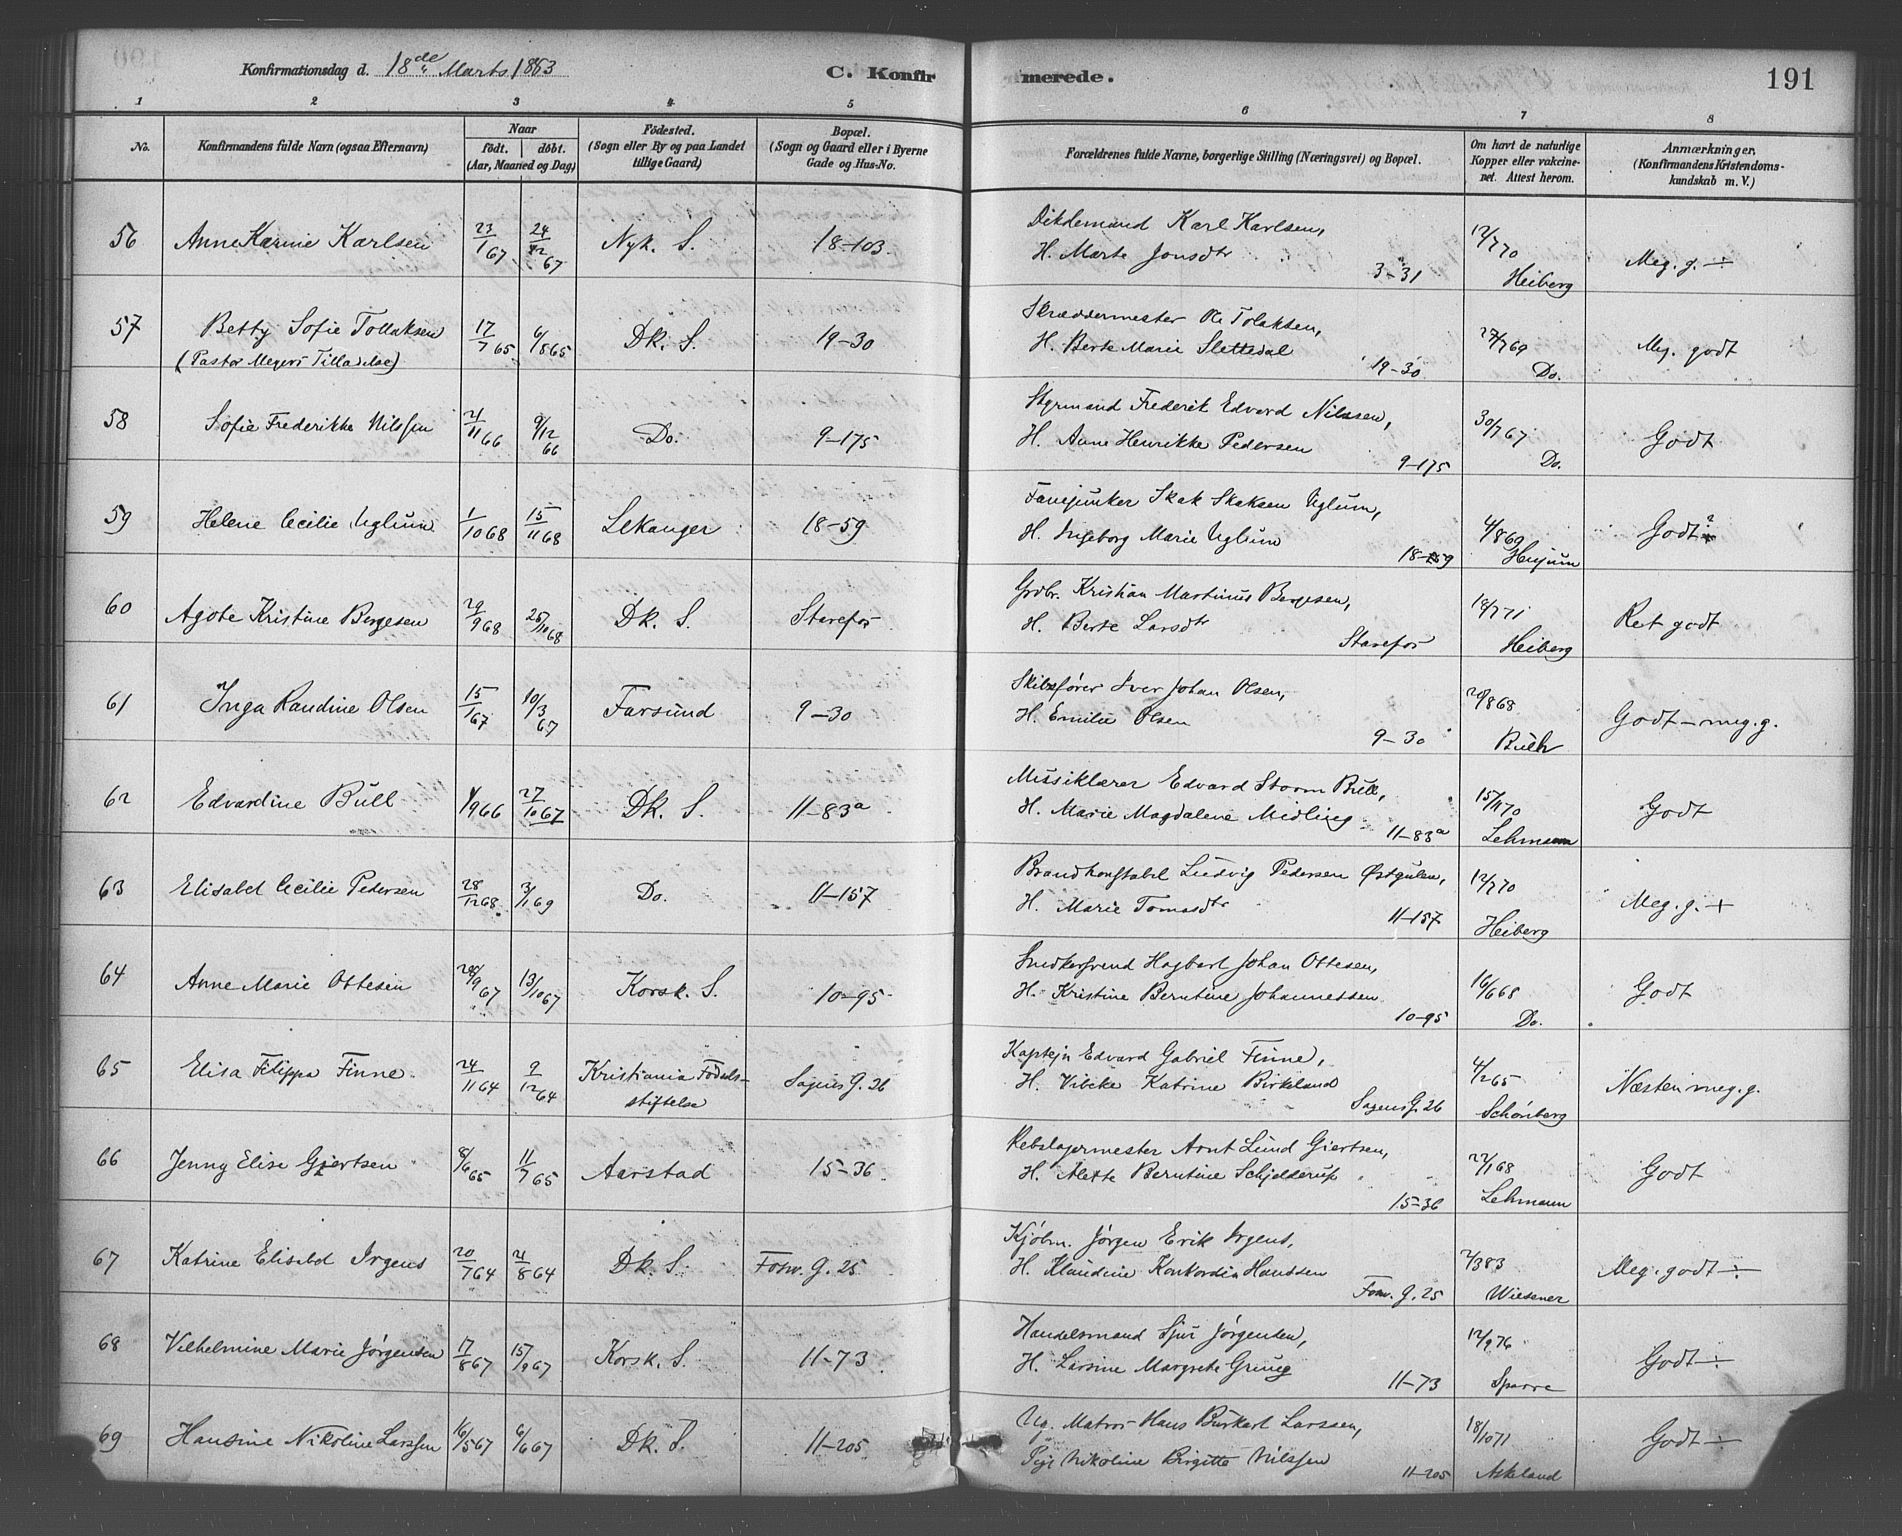 Konfirmationsdag d. 18de Marts 1883
C. Konfirmerede.
191
1 2 3 4 5 6 7 8
No.
Konfirmandens fulde Navn (ogsaa Efternavn)
Naar
født. døbt.
(Aar, Maaned og Dag)
Fødested.
(Sogn eller By og paa Landet
tillige Gaard)
Bopæl.
(Sogn og Gaard eller i Byerne
Gade og Hus-No.
Forældrenes fulde Navne, borgerlige Stilling (Næringsvei) og Bopæl.
Om havt de naturlige
Kopper eller vakcine-
ret. Attest herom.
Anmærkninger,
(Konfirmandens Kristendoms-
kundskab m. V.)
56 Anne Karine Karlsen 23/1 67 24/12 67 Nyk. S. 18-103 Karl Karlsen,
H. Marte Jonsdtr 3-31 12/7 70 Heiberg Meg. g. ÷
57 Betty Sofie Tollaksen 17/7 65 6/8 65 Dk. S. 19-30 Skræddermester Ole Tolaksen,
(Pastor Meyers Tilladelse) H. Berte Marie Slettedal 19-30 27/7 69 Do. Meg. godt
58 Sofie Frederikke Nilssen 21/11 66 9/12 66 Do. 9-175 Styrmand Frederik Edvard Nilssen,
H. Anne Henrikke Pedersen 9-175 30/7 67 Do. Godt
59 Helene Cecilie Uglum 1/10 68 15/11 68 Lekanger 18-59 Fanejunker Skak Skaksen Uglum,
H. Ingeborg Marie Uglum 18-59 4/8 69 Husum Godt
60 Agote Kristine Bergesen 29/9 68 25/10 68 Dk. S. Starefos Grdbr. Kristian Martinus Bergesen,
H. Berte Larsdtr Starefos 18/7 71 Heiberg Ret godt
61 Inga Randine Olsen 15/1 67 10/3 67 Farsund 9-30 Skibsfører Iver Johan Olsen,
H. Emilie Olsen 9-30 20/8 68 Buch Godt-meg. g.
62 Edvardine Bull 1/9 66 27/10 67 Dk. S. 11-83a Musiklærer Edvard Storm Bull,
H. Marie Magdalene Midling 11-83a 15/11 70 Lehmann Godt
63 Elisabet Cecilie Pedersen 28/12 68 3/1 69 Do. 11-157 Brandkonstabel Ludvig Pedersen Østgulen,
H. Marie Tomasdtr 11-157 12/7 70 Heiberg Meg. g. +
64 Anne Marie Ottesen 28/9 67 13/10 67 Korsk. S. 10-95 Snedkersvend Hagbart Johan Ottesen,
H. Kristine Berntine Johannessen 10-95 16/6 68 Do. Godt
65 Elisa Filippa Finne 24/11 64 2/12 64 Kristiania Fødsels- Sagens G. 26 Kaptejn Edvard Gabriel Finne,
stiftelse H. Vibeke Katrine Birkeland Sagens G. 26 4/2 65 Schönberg Næsten meg. g.
66 Jenny Elise Gjertsen 8/6 65 11/7 65 Aarstad 15-36 Rebslagermester Arnt Lund Giertsen,
H. Alette Berntine Schjelderup 15-36 22/1 68 Lehmann Godt
67 Katrine Elisabet Irgens 20/7 64 21/8 64 Dk. S. Fosw. G. 25 Kjøbm. Jørgen Erik Irgens,
H. Klaudine Konkordia Hanssen Fosw. G. 25 2/3 83 Wiesener Meg. godt ÷
68 Vilhelmine Marie Jørgensen 17/8 67 15/9 67 Korsk. S. 11-73 Handelsmand Sjur Jørgensen,
H. Larsine Margrete Grung 11-73 12/9 76 Sparre Godt ÷
69 Hansine Nikoline Larssen 16/5 67 6/6 67 Dk. S. 11-205 Ug. Matros Hans Burkart Larssen,
Pige Nikoline Birgitte Nilssen 11-205 18/10 71 Askeland Godt ÷